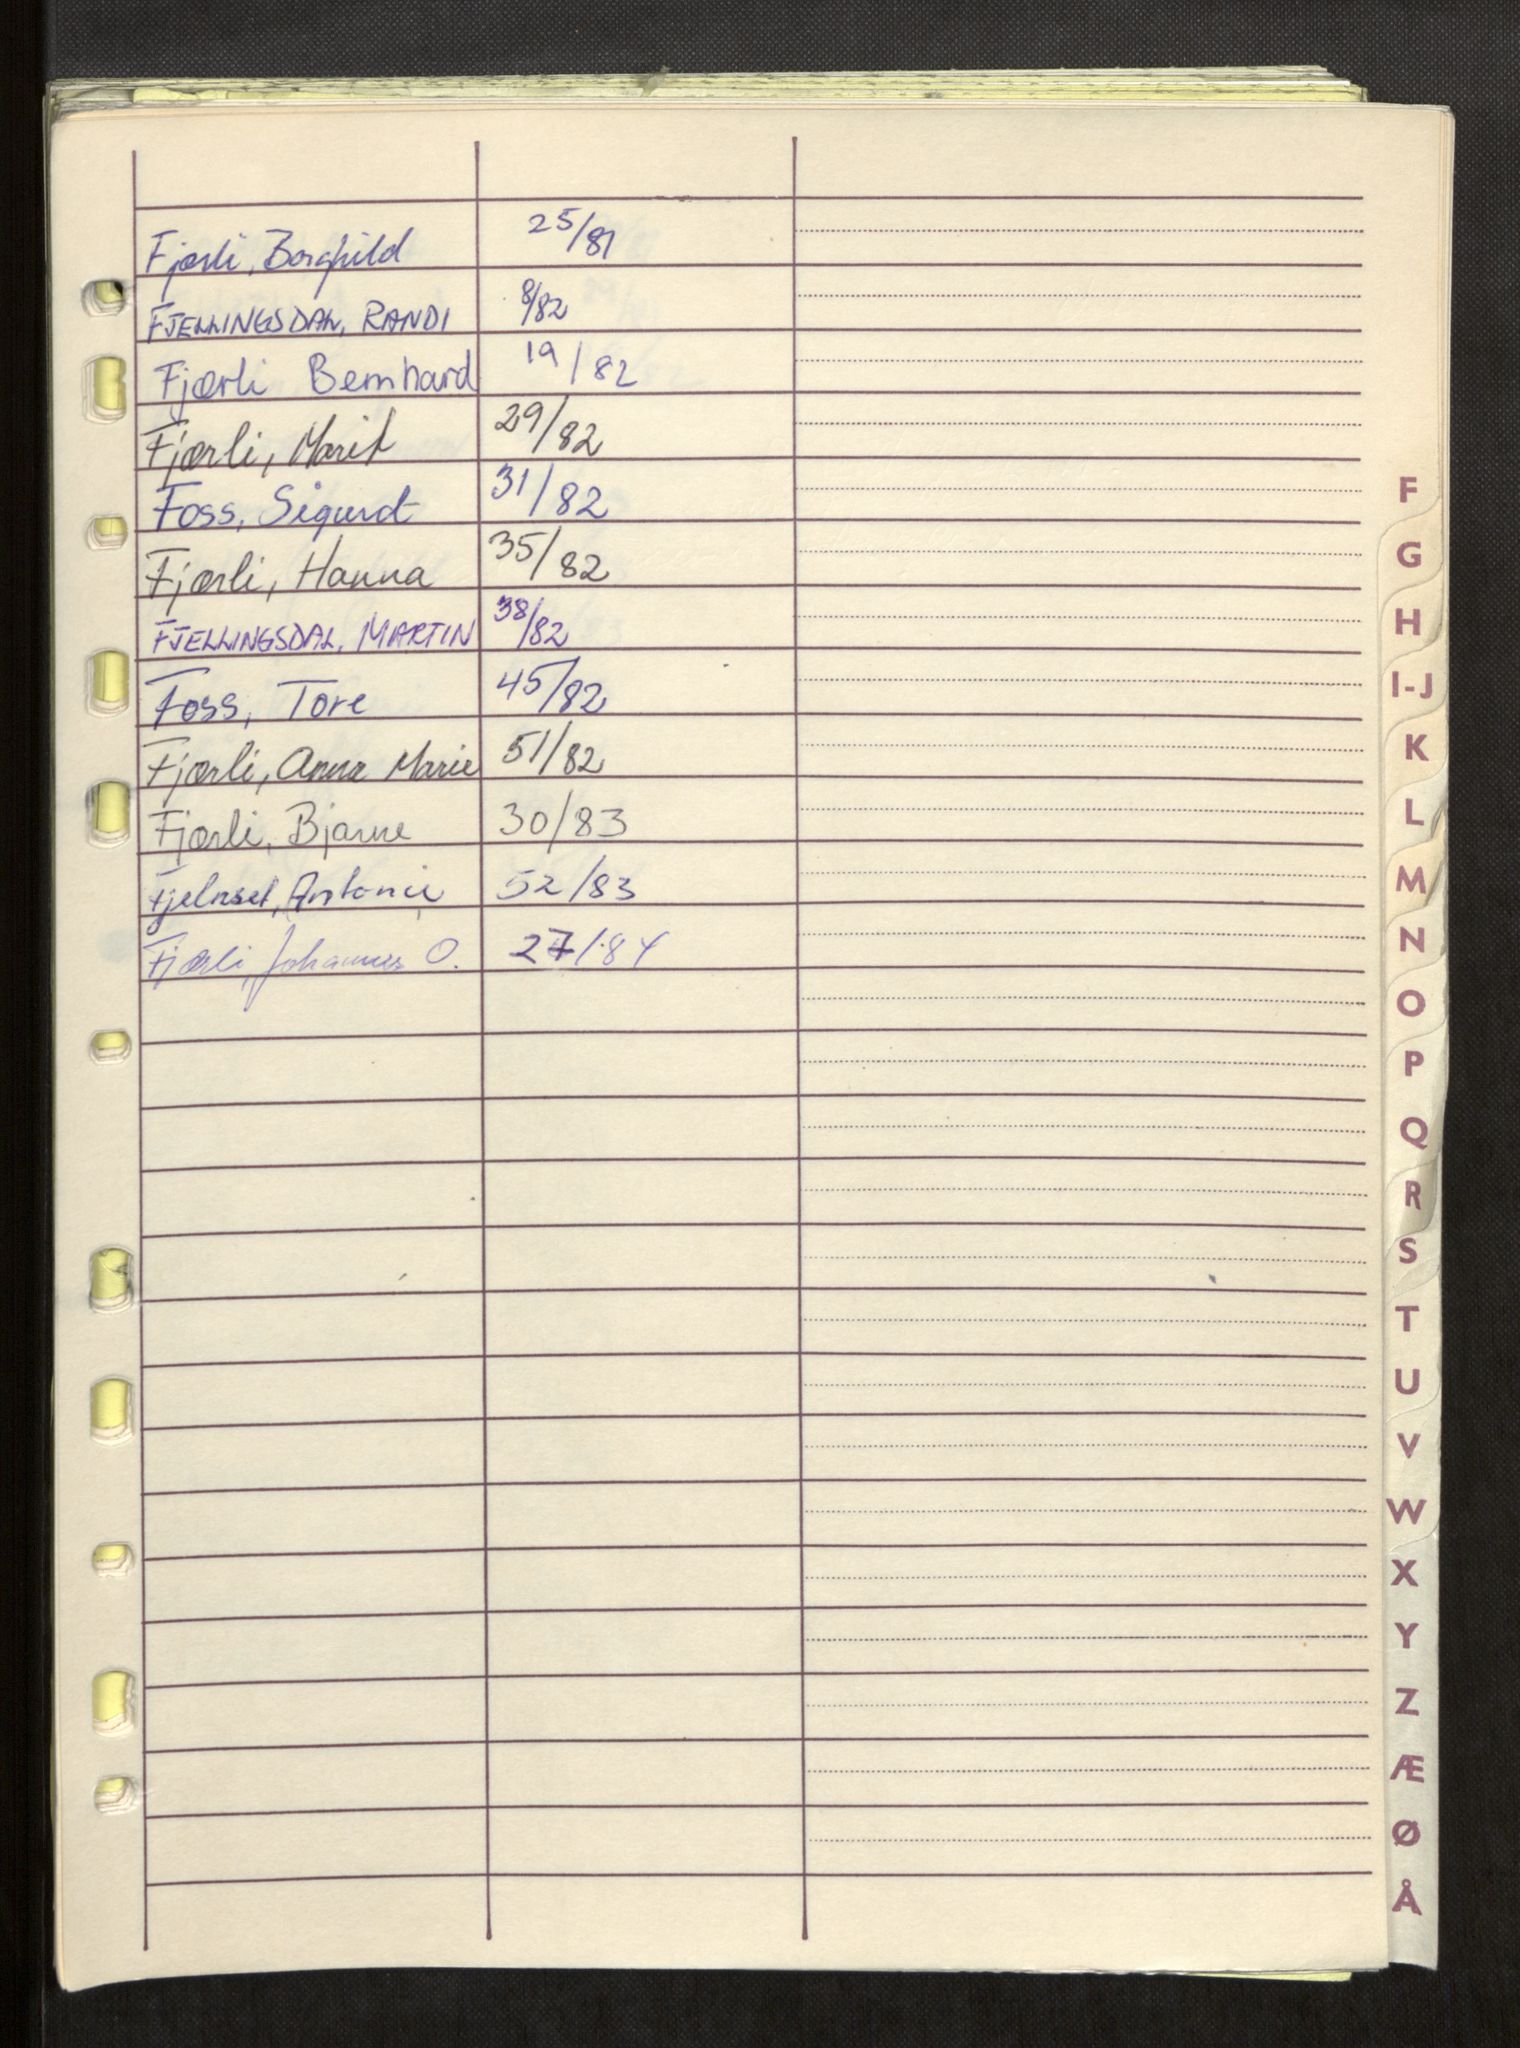 Fjærli, Borghild 25/81
FJELLINGSDAL, RANDI 8/82
Fjærli Bernhard 19/82
Fjærli, Marit 29/82
Foss, Sigurd 31/82
Fjærli, Hanna 35/82
FJELLINGSDAL, MARTIN 38/82
Foss, Tore 45/82
Fjærli, Anna Marie 51/82
Fjærli, Bjarne 30/83
Fjelnset, Antonie 52/83
Fjærli, Johannes O. 27/84
F
G
H
I-J
K
L
M
N
O
P
Q
R
S
T
U
V
W
X
Y
Z
Æ
Ø
Å